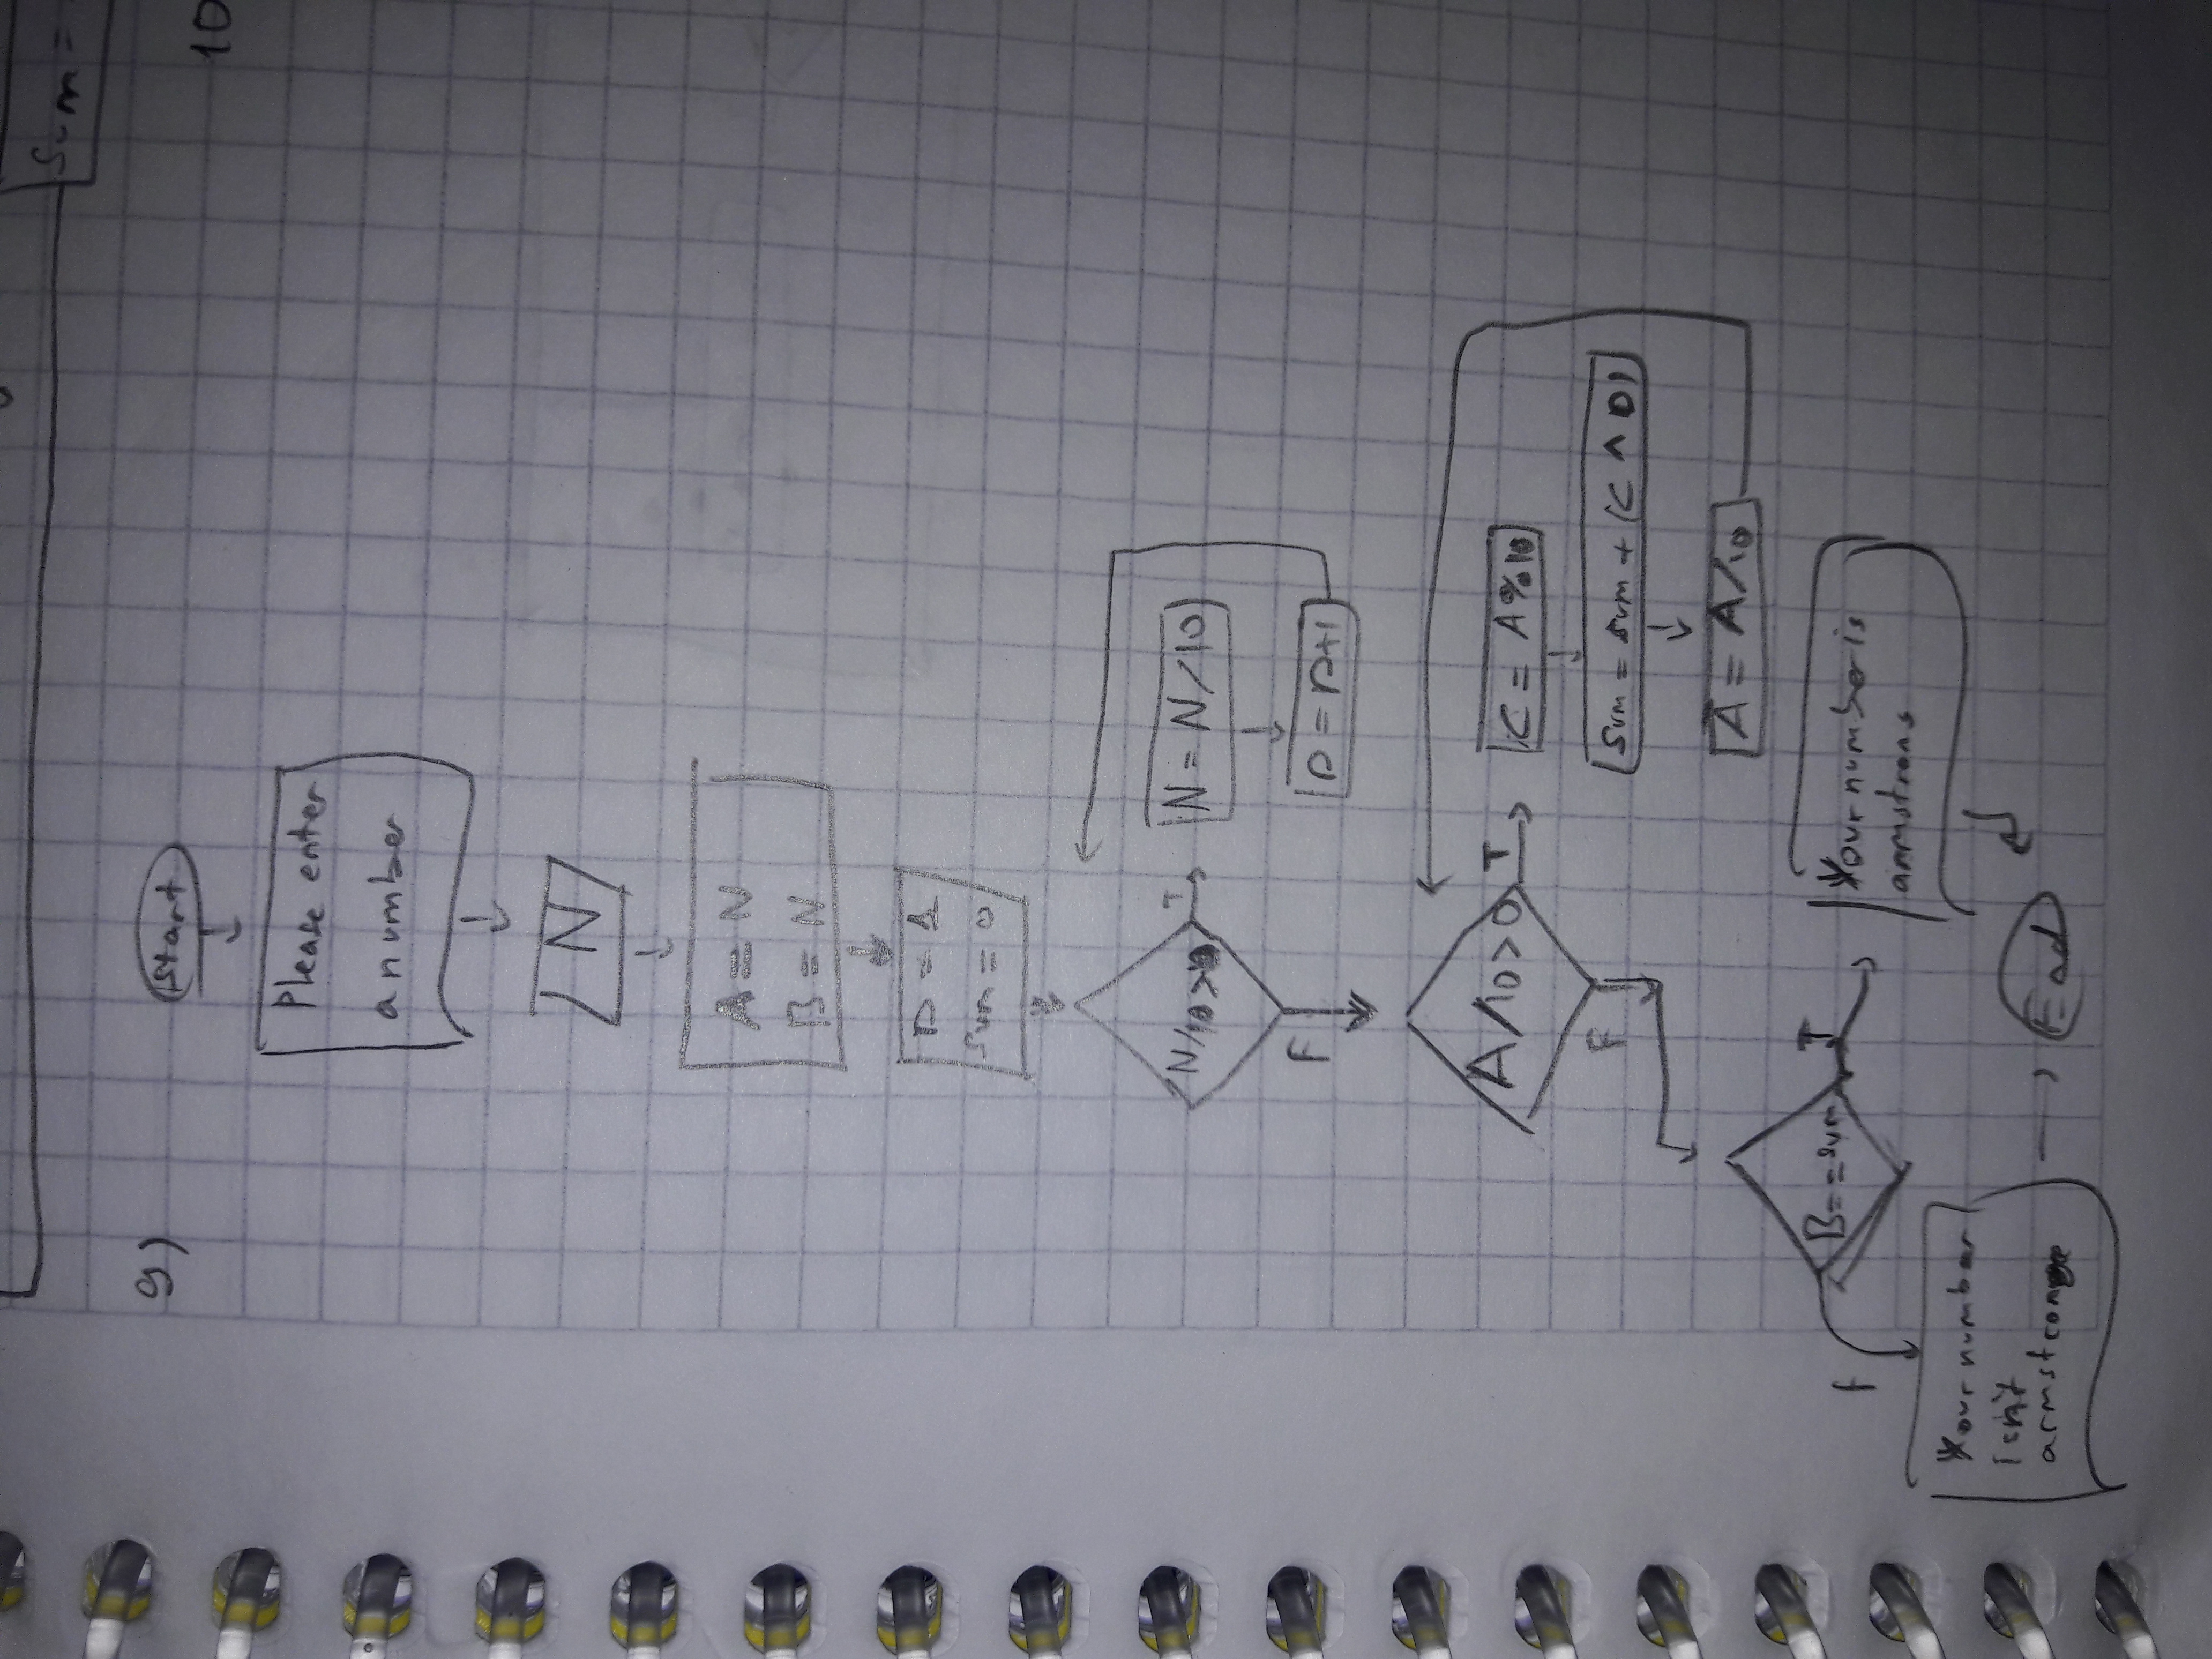 Sum =
9)
10
Start
Please enter
a number
N
A = N
B = N
D = 1
Sum = 0
T
N = N/10
F
D = D+1
A/10>0
T
C = A%10
F
Sum = sum + (C ^ D)
A = A/10
B==sum
T
F
Your number is
armstrong
Your number
isn't
armstrong
End